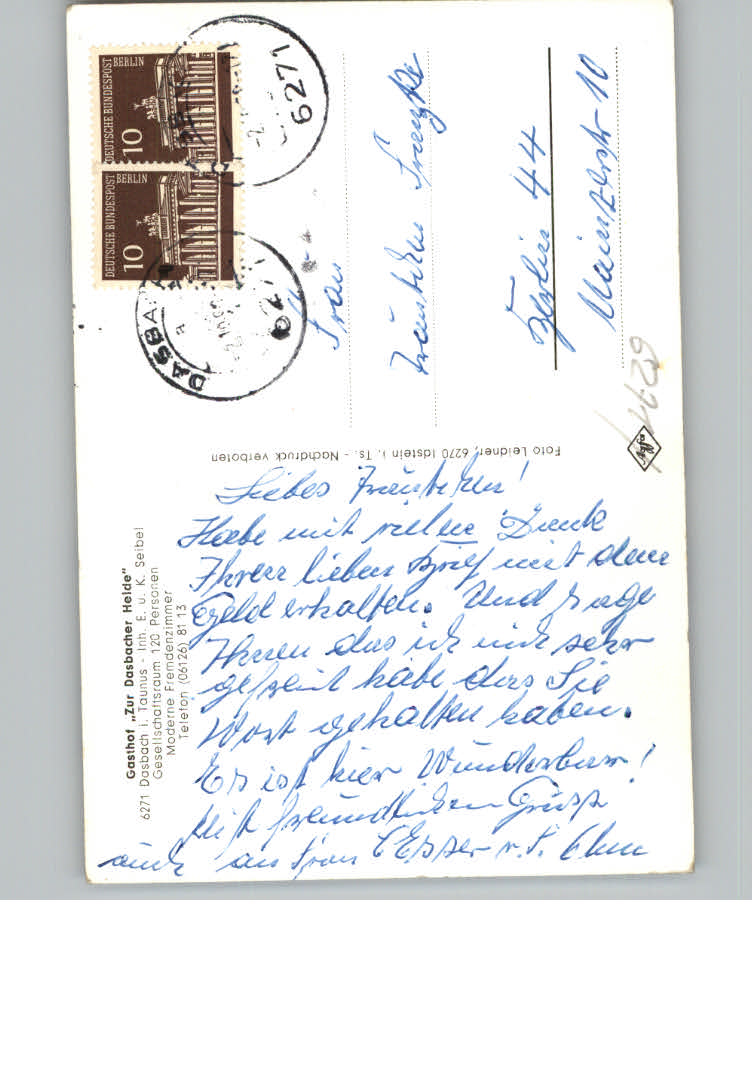 Gasthof „Zur Dasbacher Heide"
6271 Dasbach i. Taunus - Inh. E. u. K. Seibel
Gesellschaftsraum 120 Personen
Moderne Fremdenzimmer
Telefon (06126) 81 13
Liebes Fräulein!
Habe mit vielen Dank
Ihren lieben Brief mit dem
Geld erhalten. Und sage
Ihnen das ich mich sehr
gefreut habe das Sie
Wort gehalten haben.
Es ist hier Wunderbar!
Mit freundlichem Gruss
auch an Frau
Foto Leidner, 6270 Idstein i. Ts. - Nachdruck verboten
Agfa
DEUTSCHE BUNDESPOST
BERLIN
10
DEUTSCHE BUNDESPOST
BERLIN
10
6271
DASBACH
6271
Frau
Berlin 44
Mainzerstr 10